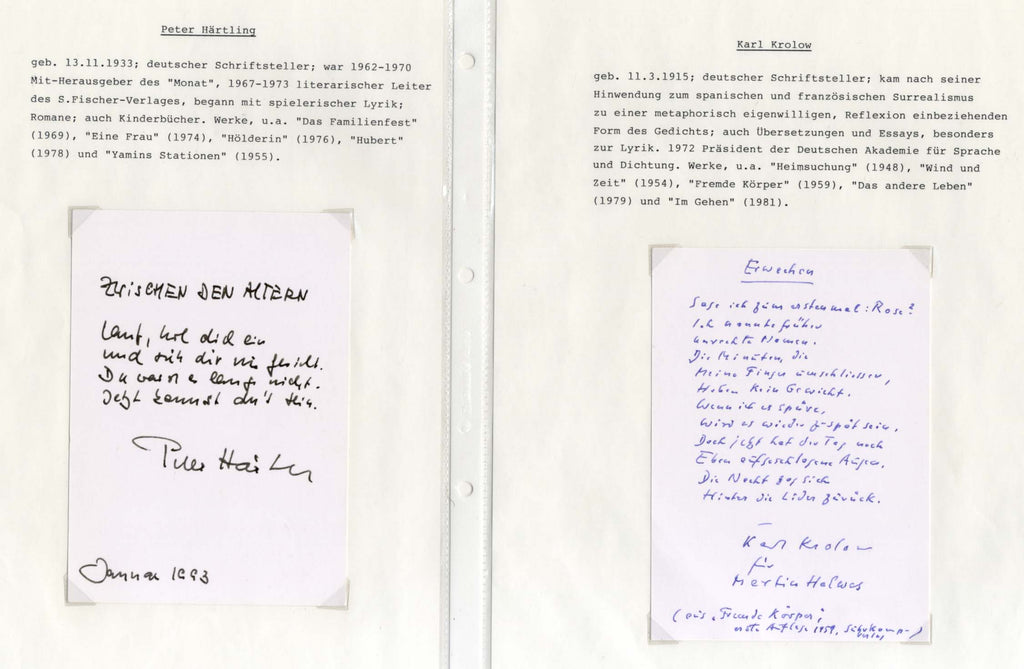 Peter Härtling
geb. 13.11.1933; deutscher Schriftsteller; war 1962-1970
Mit-Herausgeber des "Monat", 1967-1973 literarischer Leiter
des S.Fischer-Verlages, begann mit spielerischer Lyrik;
Romane; auch Kinderbücher. Werke, u.a. "Das Familienfest"
(1969), "Eine Frau" (1974), "Hölderin" (1976), "Hubert"
(1978) und "Yamins Stationen" (1955).
ZWISCHEN DEN ALTERN
Lauf, hol dich ein
und sieh dir ins Gesicht.
Du warst es lange nicht.
Jetzt kannst du's sein.
Peter Härtling
Januar 1993
Karl Krolow
geb. 11.3.1915; deutscher Schriftsteller; kam nach seiner
Hinwendung zum spanischen und französischen Surrealismus
zu einer metaphorisch eigenwilligen, Reflexion einbeziehenden
Form des Gedichts; auch Übersetzungen und Essays, besonders
zur Lyrik. 1972 Präsident der Deutschen Akademie für Sprache
und Dichtung. Werke, u.a. "Heimsuchung" (1948), "Wind und
Zeit" (1954), "Fremde Körper" (1959), "Das andere Leben"
(1979) und "Im Gehen" (1981).
Erwachen
Sage ich zum erstenmal: Rose?
Ich nannte früher
unrechte Namen.
Die Minuten, die
Meine Finger umschliessen,
Haben kein Gewicht.
Wenn ich es spüre,
Wird es wieder zu spät sein.
Doch jetzt hat der Tag noch
Eben aufgeschlagene Augen.
Die Nacht zog sich
Hinter die Lider zurück.
Karl Krolow
für
Martin
(aus "Fremde Körper",
erste Auflage 1959, Suhrkamp-
Verlag)